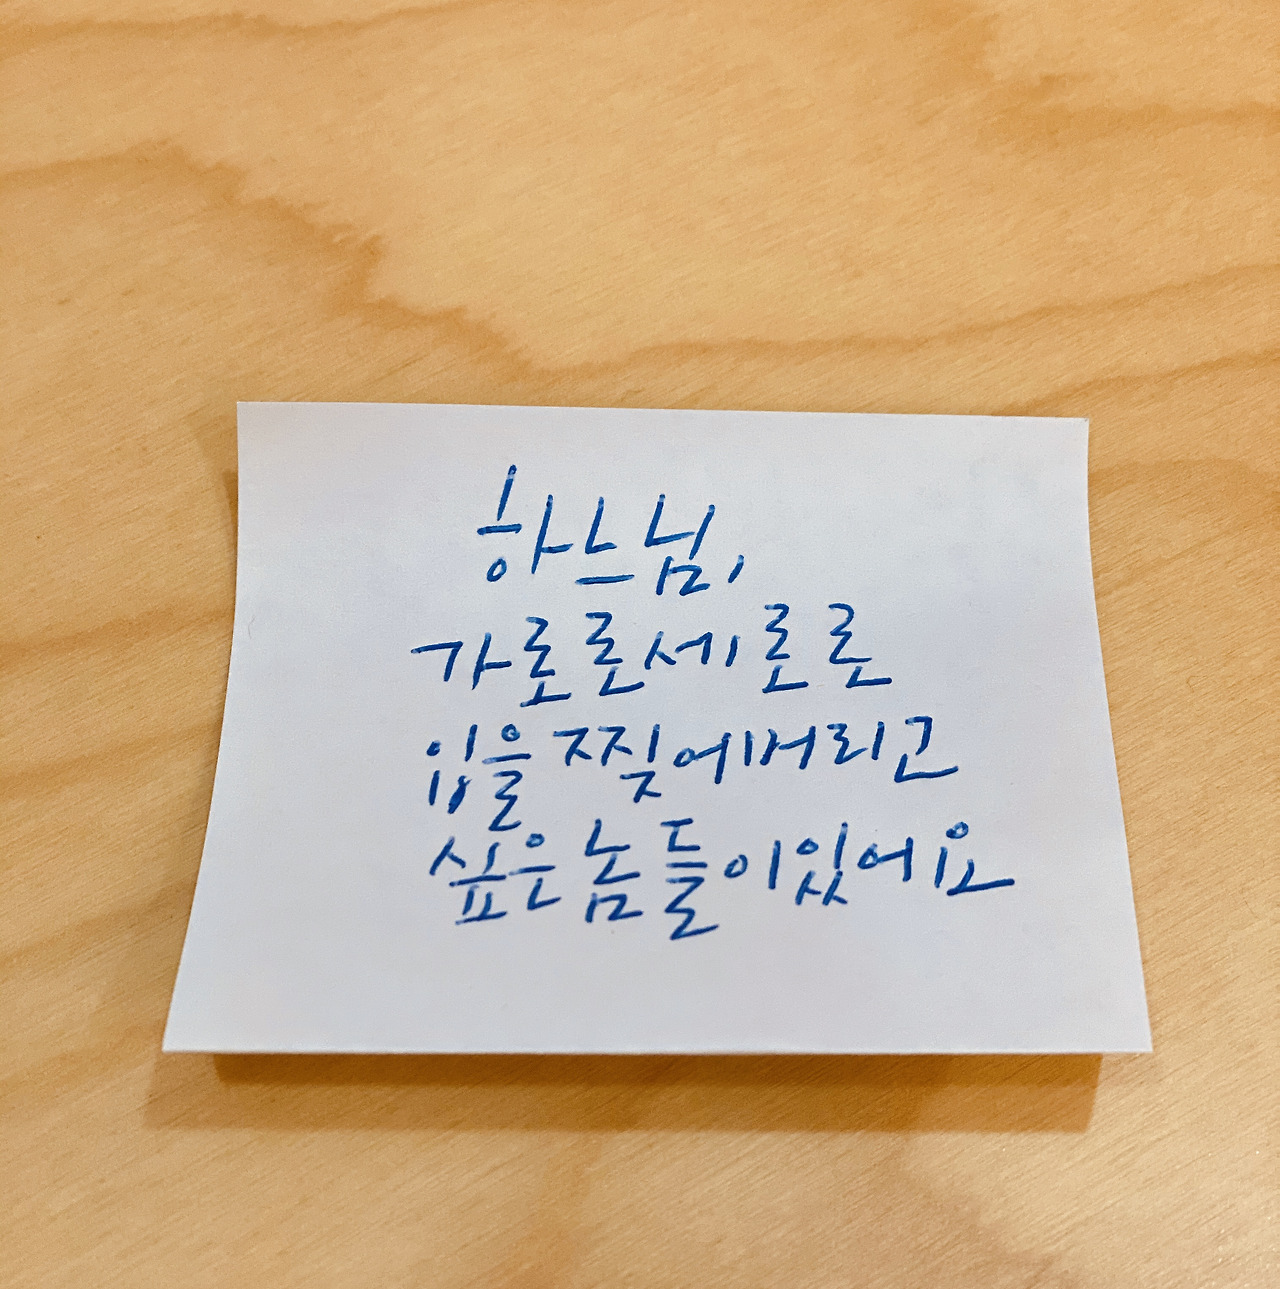 하느님,
가로로세로로
입을 찢어버리고
싶은 놈들이있어요